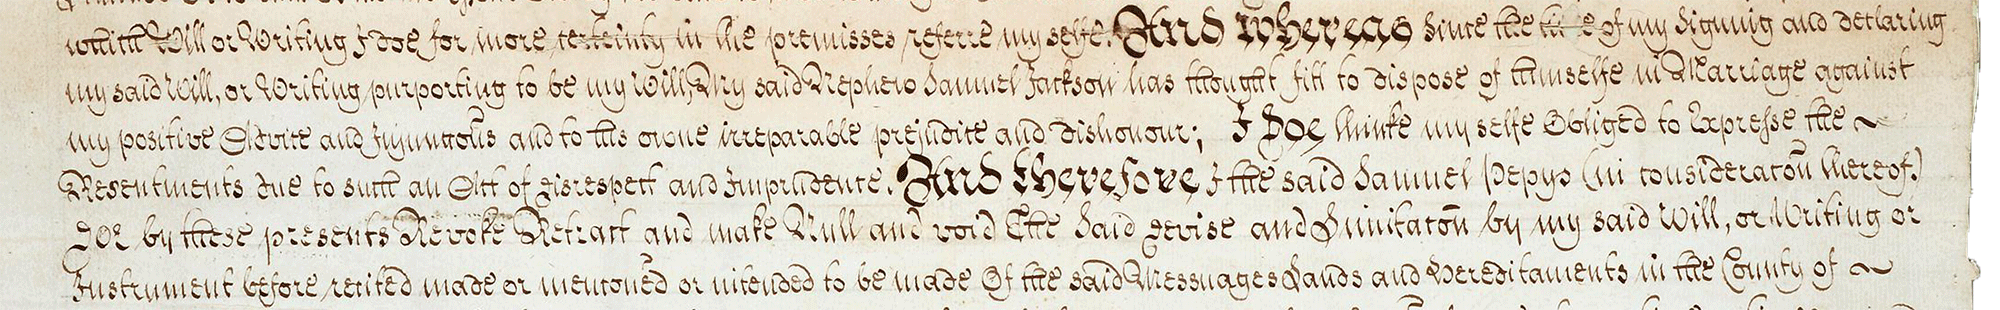 which Will or Writing I doe for more certeinty in the premisses referre my selfe. And Whereas Since the time of my Signing and declaring
my said Will, or Writing purporting to be my Will, My said Nephew Samuel Jackson has thought fitt to dispose of himselfe in Marriage against
my positive Advice and Injunctõns and to his owne irreparable prejudice and dishonour; I Doe thinke my selfe Obliged to Expresse the ~
Resentments due to such an Act of disrespect and Imprudence. And therefore I the said Samuel Pepys (in consideratõn thereof.)
Doe by these presents Revoke Retract and make Null and void The Said devise and Limitatõn by my said Will, or Writing or
Instrument before recited made or mentõned or intended to be made Of the said Messuages Lands and Hereditaments in the County of ~